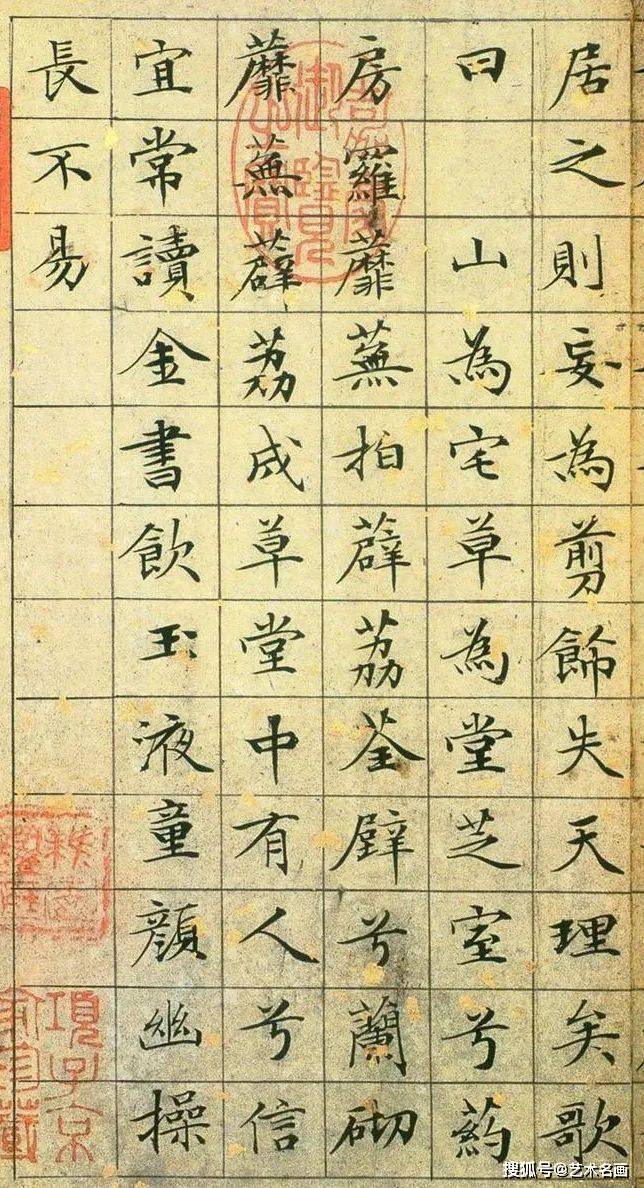 居之則妄為剪飾失天理矣歌
曰山為宅草為堂芝室兮葯
房羅蘼蕪拍薜荔荃壁兮蘭砌
蘼蕪薜荔成草堂中有人兮信
宜常讀金書飲玉液童顏幽操
長不易
御覽
之寶
項子京
家珍藏
搜狐号@艺术名画